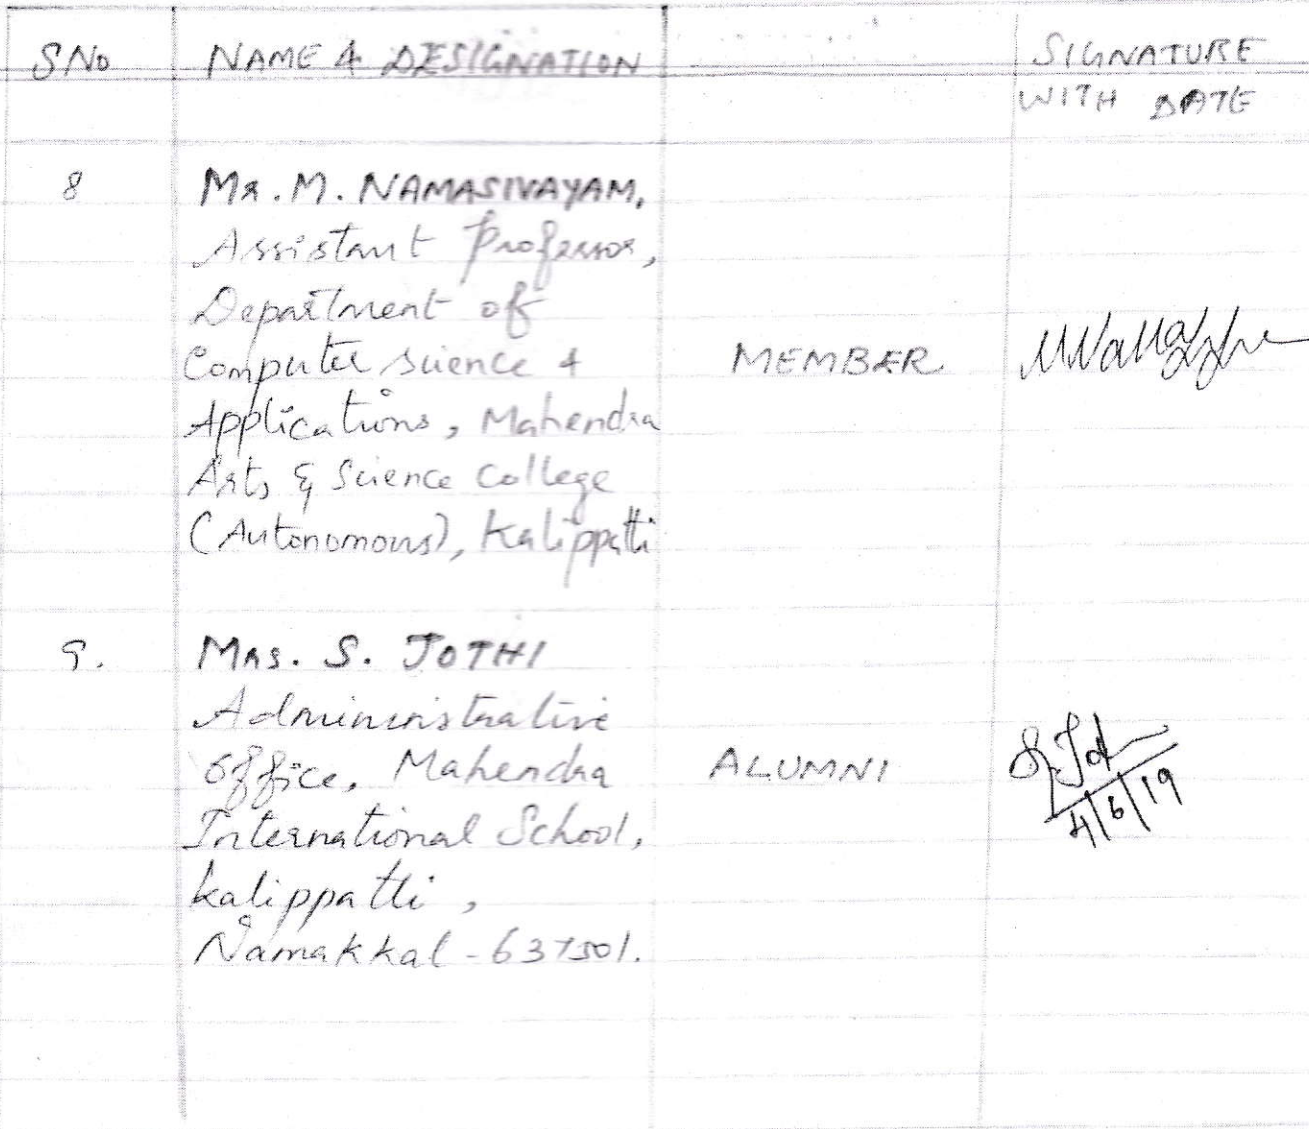 SNo NAME & DESIGNATION SIGNATURE
WITH DATE
8 Mr. M. NAMASIVAYAM,
Assistant Professor,
Department of
Computer Science & MEMBER
Applications, Mahendra
Arts & Science College
(Autonomous), Kalippatti
9. Mrs. S. JOTHI
Administrative
office, Mahendra ALUMNI S. Jot
International School, 4/6/19
kalippatti,
Namakkal - 637501.